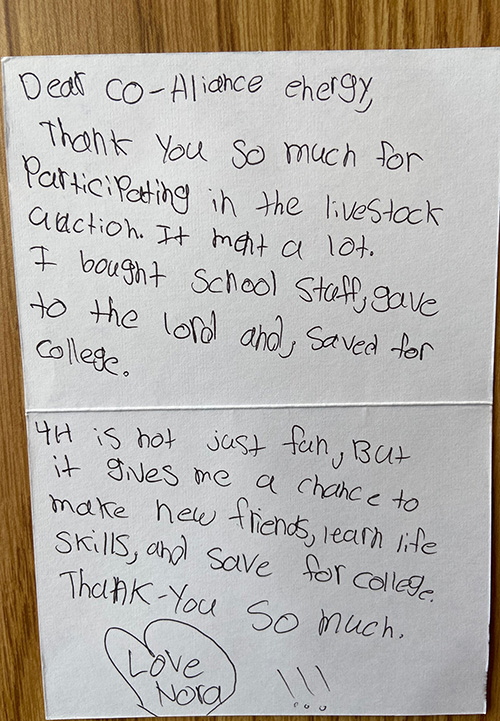 Dear CO-Aliance energy,
Thank You so much for
Participating in the livestock
auction. It ment a lot.
I bought school staff, gave
to the lord and, saved for
college.
4H is not just fun, But
it gives me a chance to
make new friends, learn life
skills, and save for college.
Thank-You so much.
Love
Nora
!!!